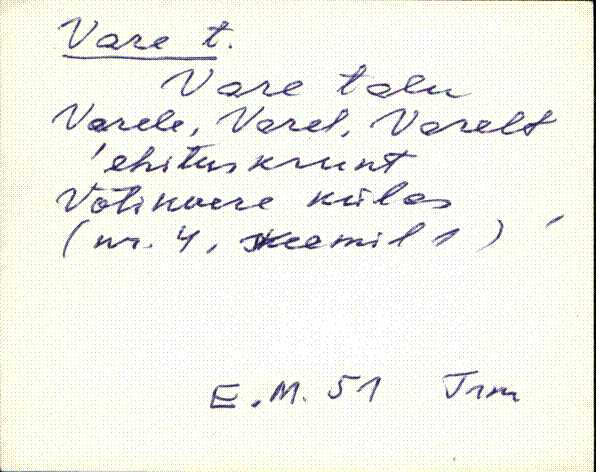 Vare t.
Vare talu
Varele, Varel, Varelt
'ehituskrunt
Võtikvere külas
(nr. 4, skeemil 1)'
E.M. 51 Trm